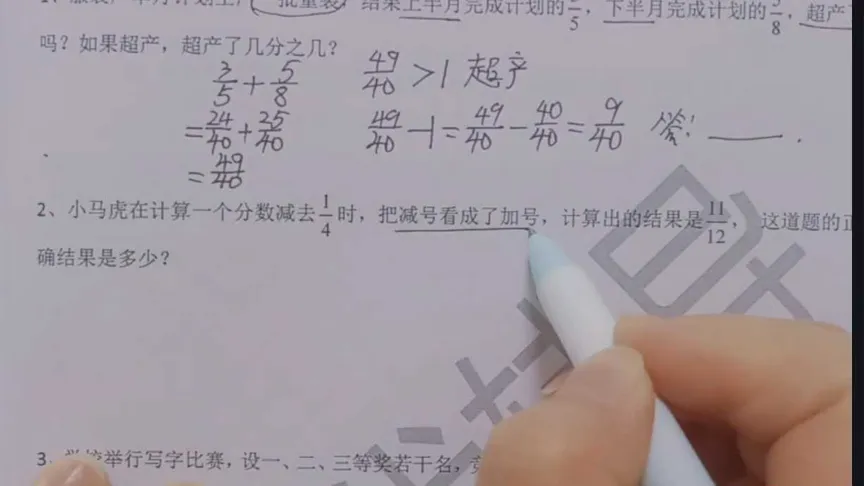 结果上半月完成计划的3/5，下半月完成计划的5/8，超产
吗？如果超产，超产了几分之几？
3/5 + 5/8
49/40 > 1 超产
= 24/40 + 25/40
49/40 - 1 = 49/40 - 40/40 = 9/40 答：______.
= 49/40
2、小马虎在计算一个分数减去1/4时，把减号看成了加号，计算出的结果是11/12，这道题的正
确结果是多少？
3、学校举行写字比赛，设一、二、三等奖若干名，